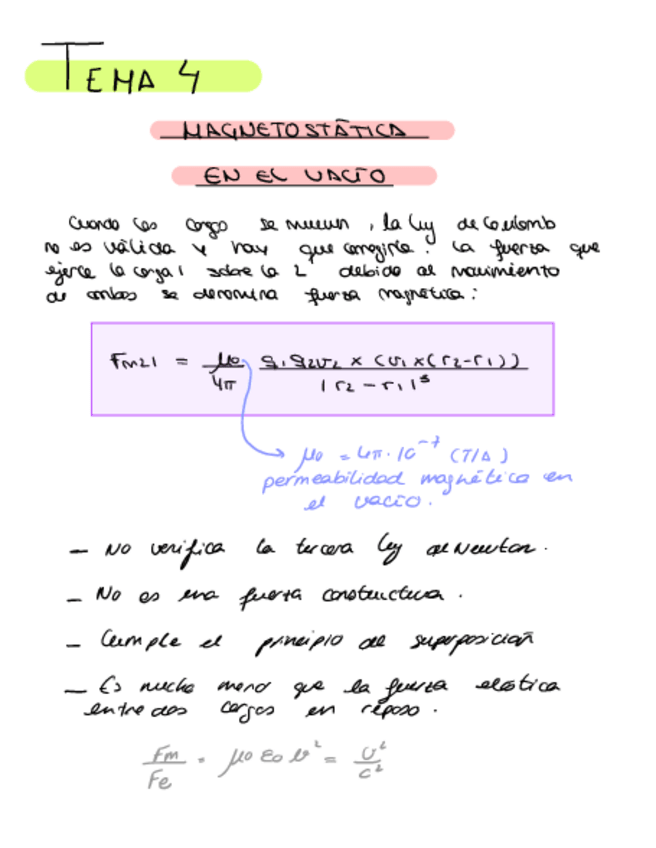 TEMA 4
MAGNETOSTÁTICA
EN EL VACÍO
Cuando las cargas se mueven, la ley de Coulomb
no es válida y hay que corregirla. La fuerza que
ejerce la carga 1 sobre la 2 debido al movimiento
de ambas se denomina fuerza magnética:
Fm21 = μ0/4π q1 q2 v2 × (v1 × (r2 - r1)) / |r2 - r1|³
μ0 = 4π · 10⁻⁷ (T/A)
permeabilidad magnética en
el vacío.
- No verifica la tercera ley de Newton.
- No es una fuerza constructiva.
- Cumple el principio de superposición
- Es mucho menor que la fuerza elástica
entre dos cargas en reposo.
Fm/Fe = μ0 ε0 v² = v²/c²